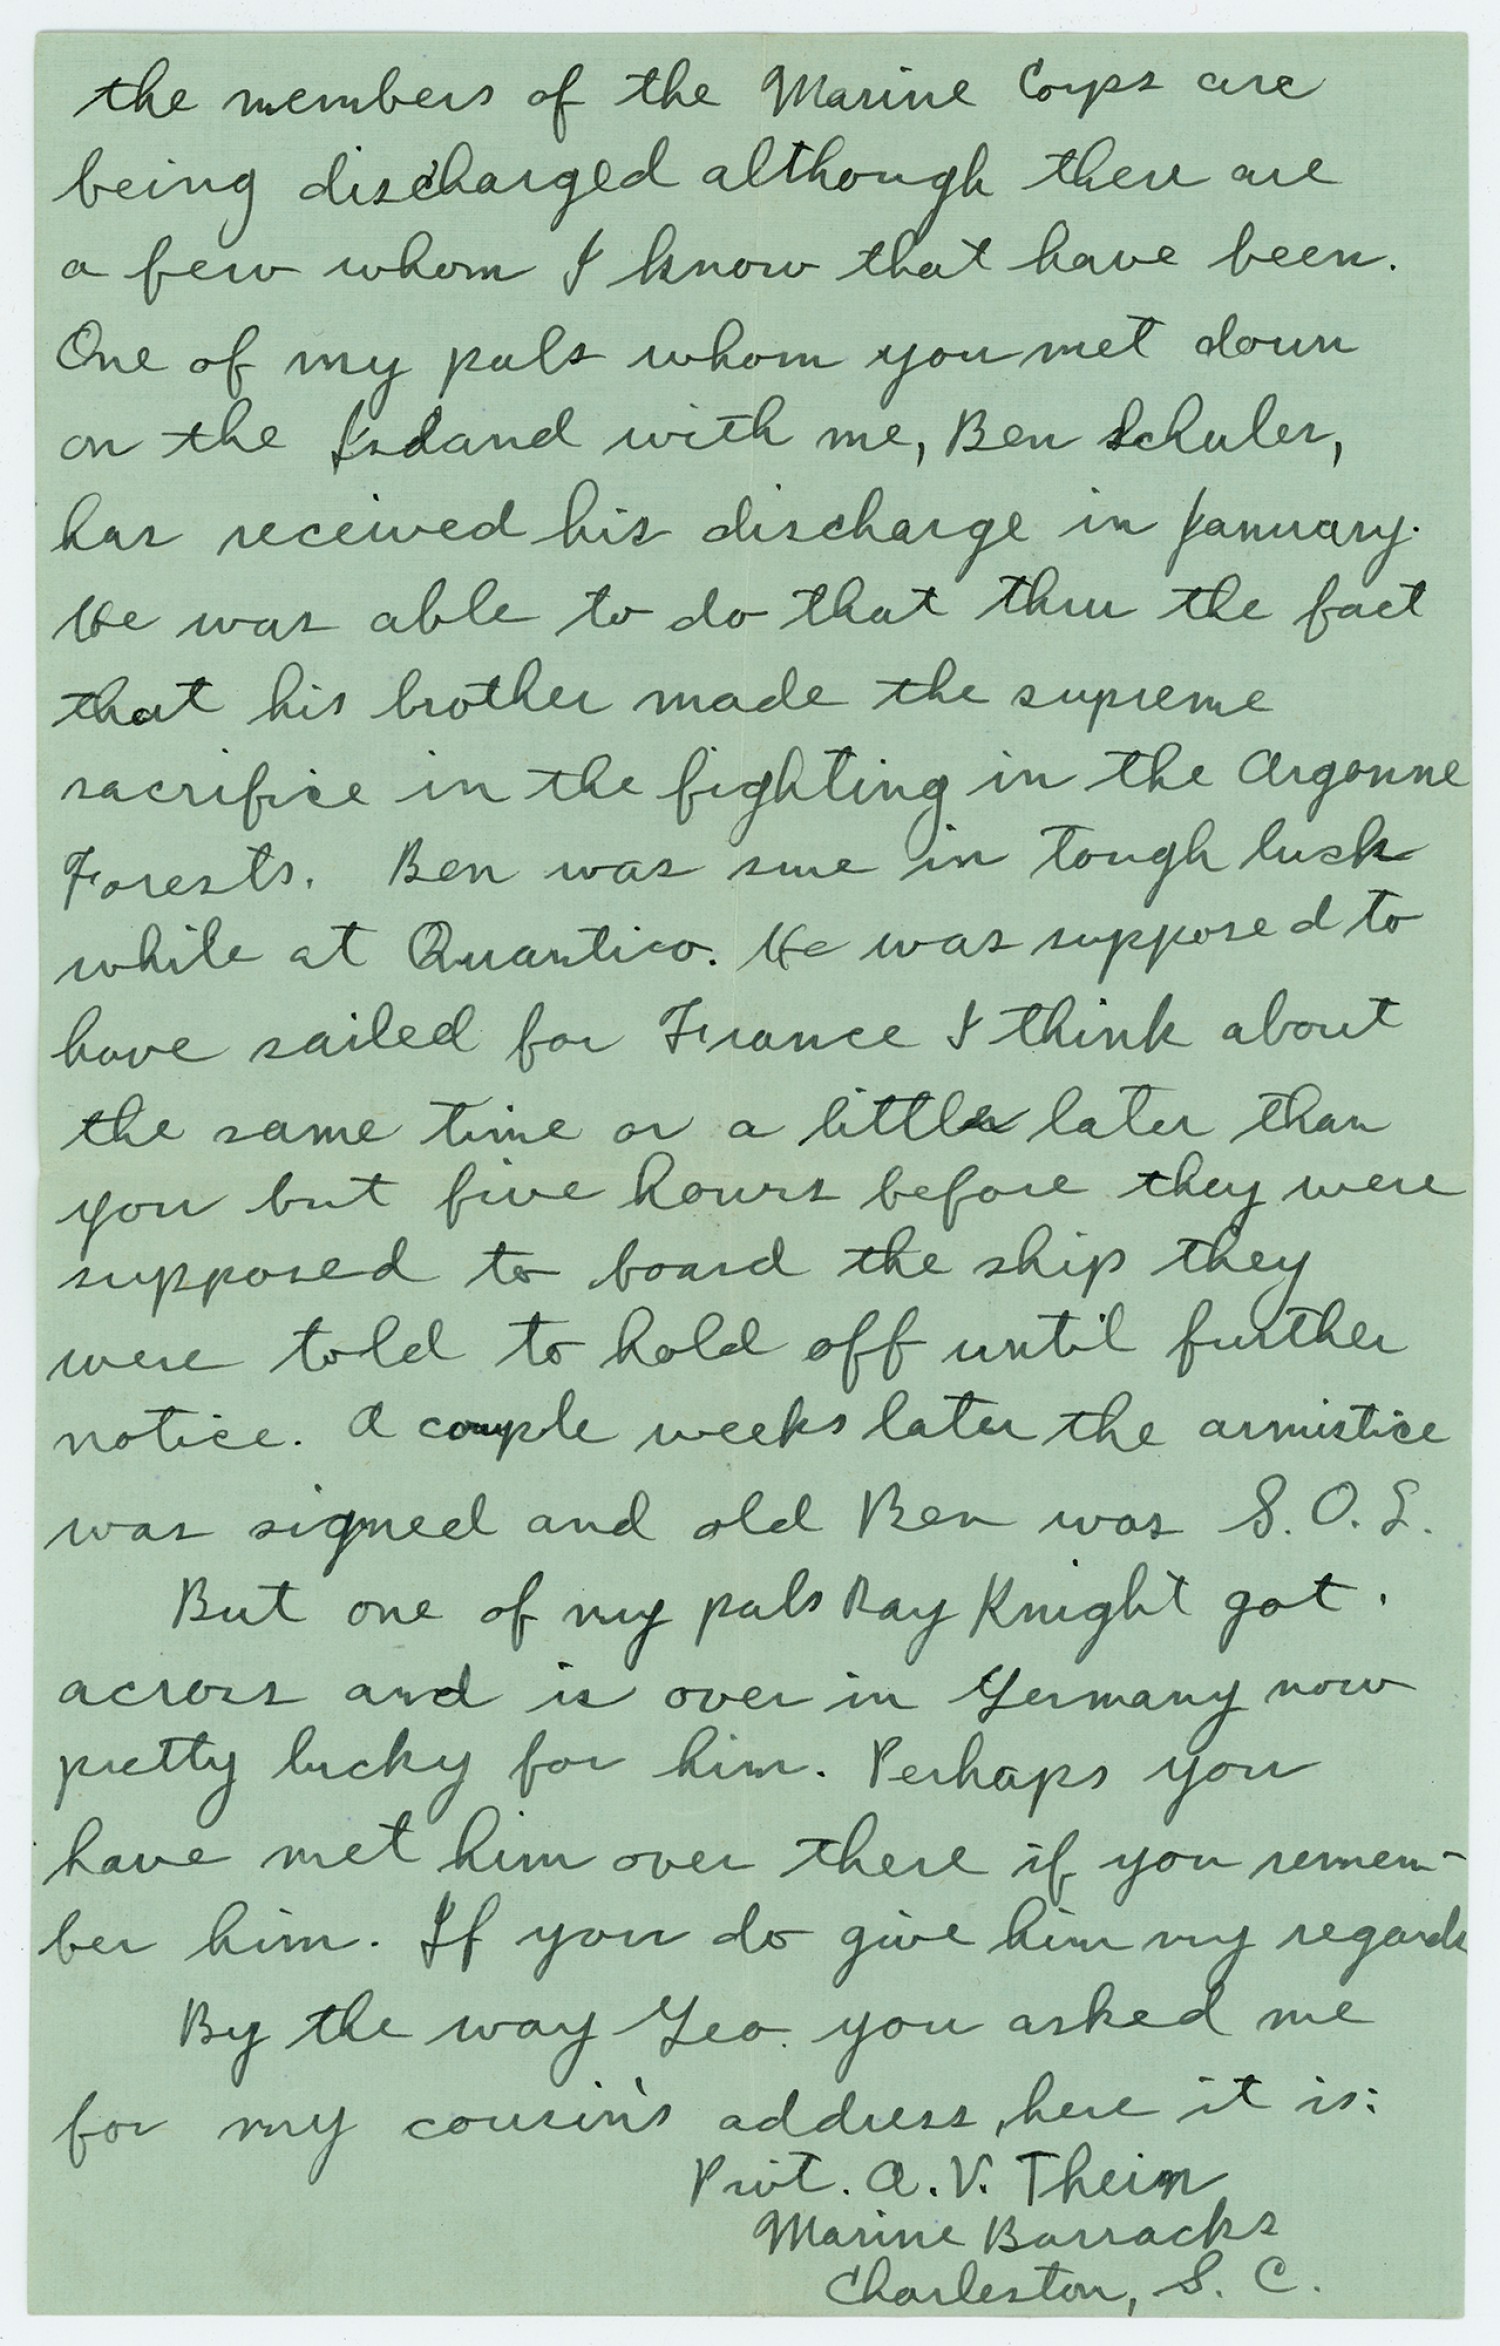 the members of the Marine Corps are
being discharged although there are
a few whom I know that have been.
One of my pals whom you met down
on the Island with me, Ben Schuler,
has received his discharge in January.
He was able to do that thru the fact
that his brother made the supreme
sacrifice in the fighting in the Argonne
Forests. Ben was sure in tough luck
while at Quantico. He was supposed to
have sailed for France I think about
the same time or a little later than
you but five hours before they were
supposed to board the ship they
were told to hold off until further
notice. A couple weeks later the armistice
was signed and old Ben was S.O.L.
But one of my pals Ray Knight got
across and is over in Germany now
pretty lucky for him. Perhaps you
have met him over there if you remem-
ber him. If you do give him my regards
By the way Geo. you asked me
for my cousin's address, here it is:
Privt. A. V. Thein
Marine Barracks
Charleston, S. C.